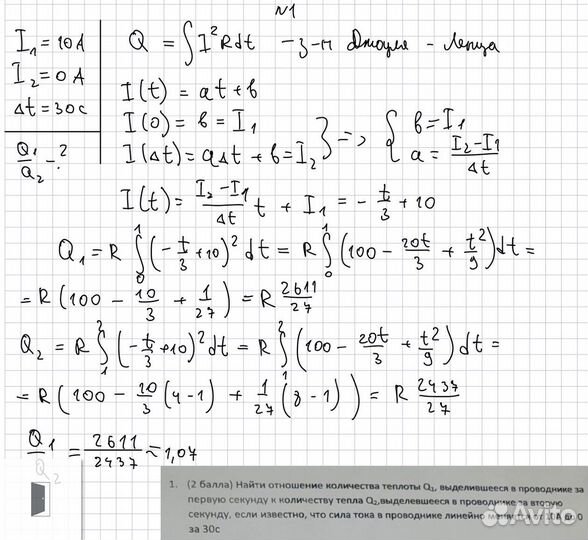 №1
I₁ = 10A
I₂ = 0A
Δt = 30c
Q₁/Q₂ - ?
Q = ∫ I²Rdt - з-н Джоуля - Ленца
I(t) = at + b
I(0) = b = I₁
I(Δt) = aΔt + b = I₂ } => { b = I₁
a = (I₂ - I₁)/Δt
I(t) = (I₂ - I₁)/Δt t + I₁ = - t/3 + 10
Q₁ = R ∫₀¹ (- t/3 + 10)² dt = R ∫₀¹ (100 - 20t/3 + t²/9) dt =
= R (100 - 10/3 + 1/27) = R 2611/27
Q₂ = R ∫₁² (- t/3 + 10)² dt = R ∫₁² (100 - 20t/3 + t²/9) dt =
= R (100 - 10/3 (4 - 1) + 1/27 (8 - 1)) = R 2437/27
Q₁/Q₂ = 2611/2437 ≈ 1,07
1. (2 балла) Найти отношение количества теплоты Q₁, выделившееся в проводнике за
первую секунду к количеству тепла Q₂,выделевшееся в проводнике за вторую
секунду, если известно, что сила тока в проводнике линейно меняется от 10А до 0
за 30с
Avito